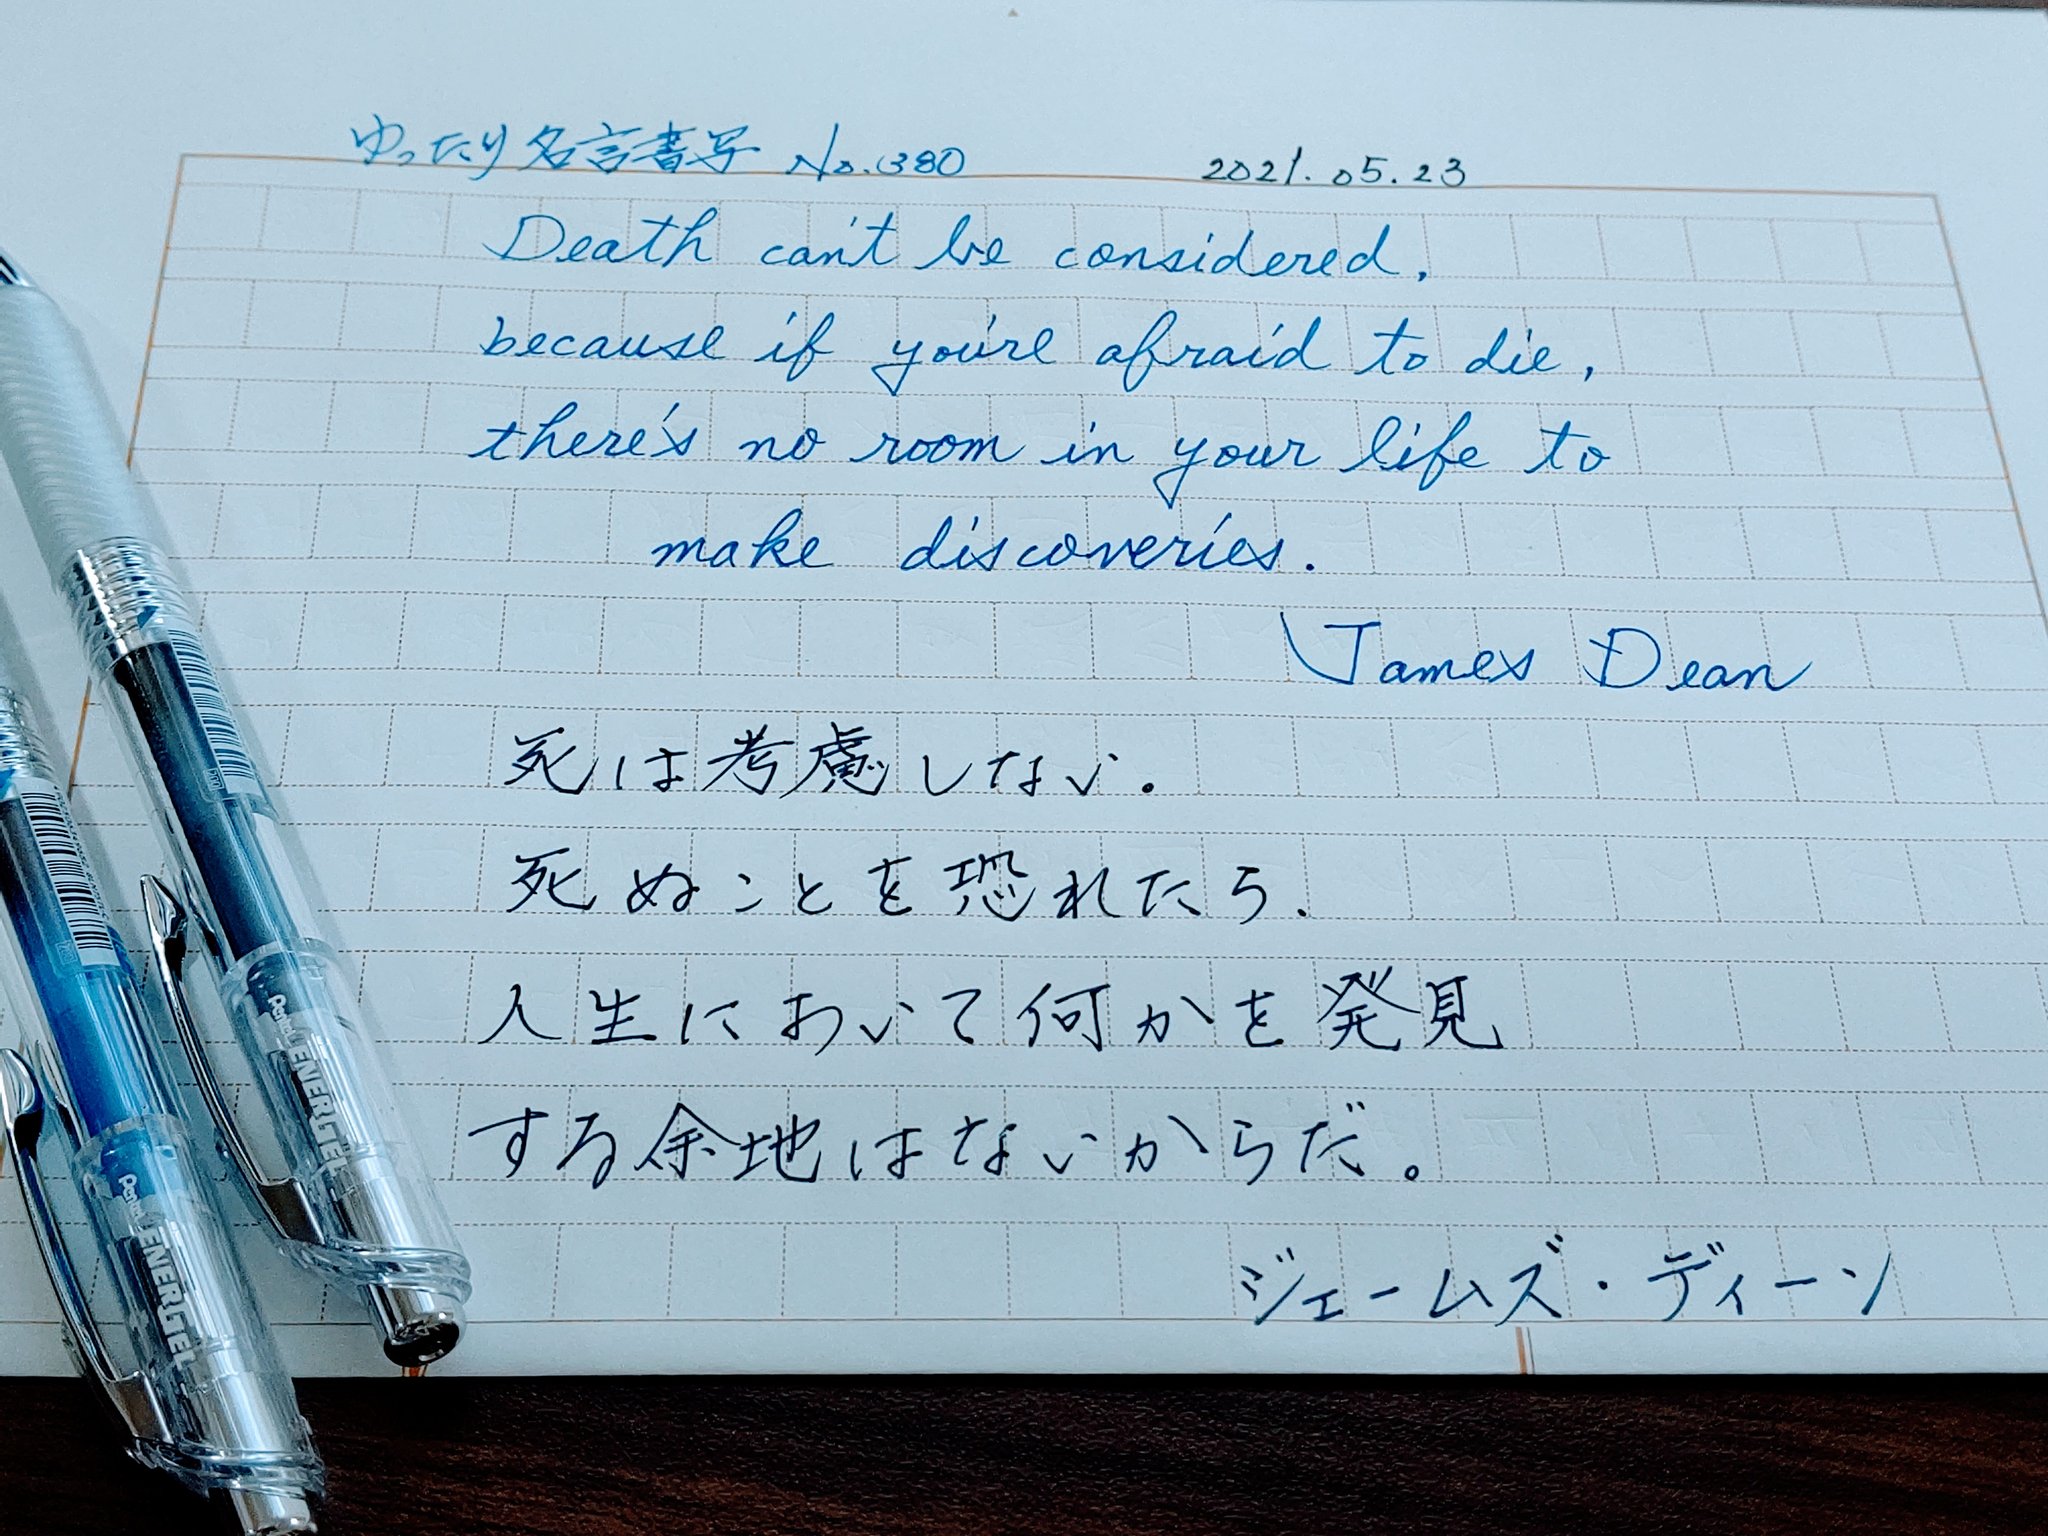 ゆったり名言書写 No.380 2021.05.23
Death can't be considered,
because if you're afraid to die,
there's no room in your life to
make discoveries.
James Dean
死は考慮しない。
死ぬことを恐れたら、
人生において何かを発見
する余地はないからだ。
ジェームズ・ディーン
Pentel ENERGEL
Pentel ENERGEL